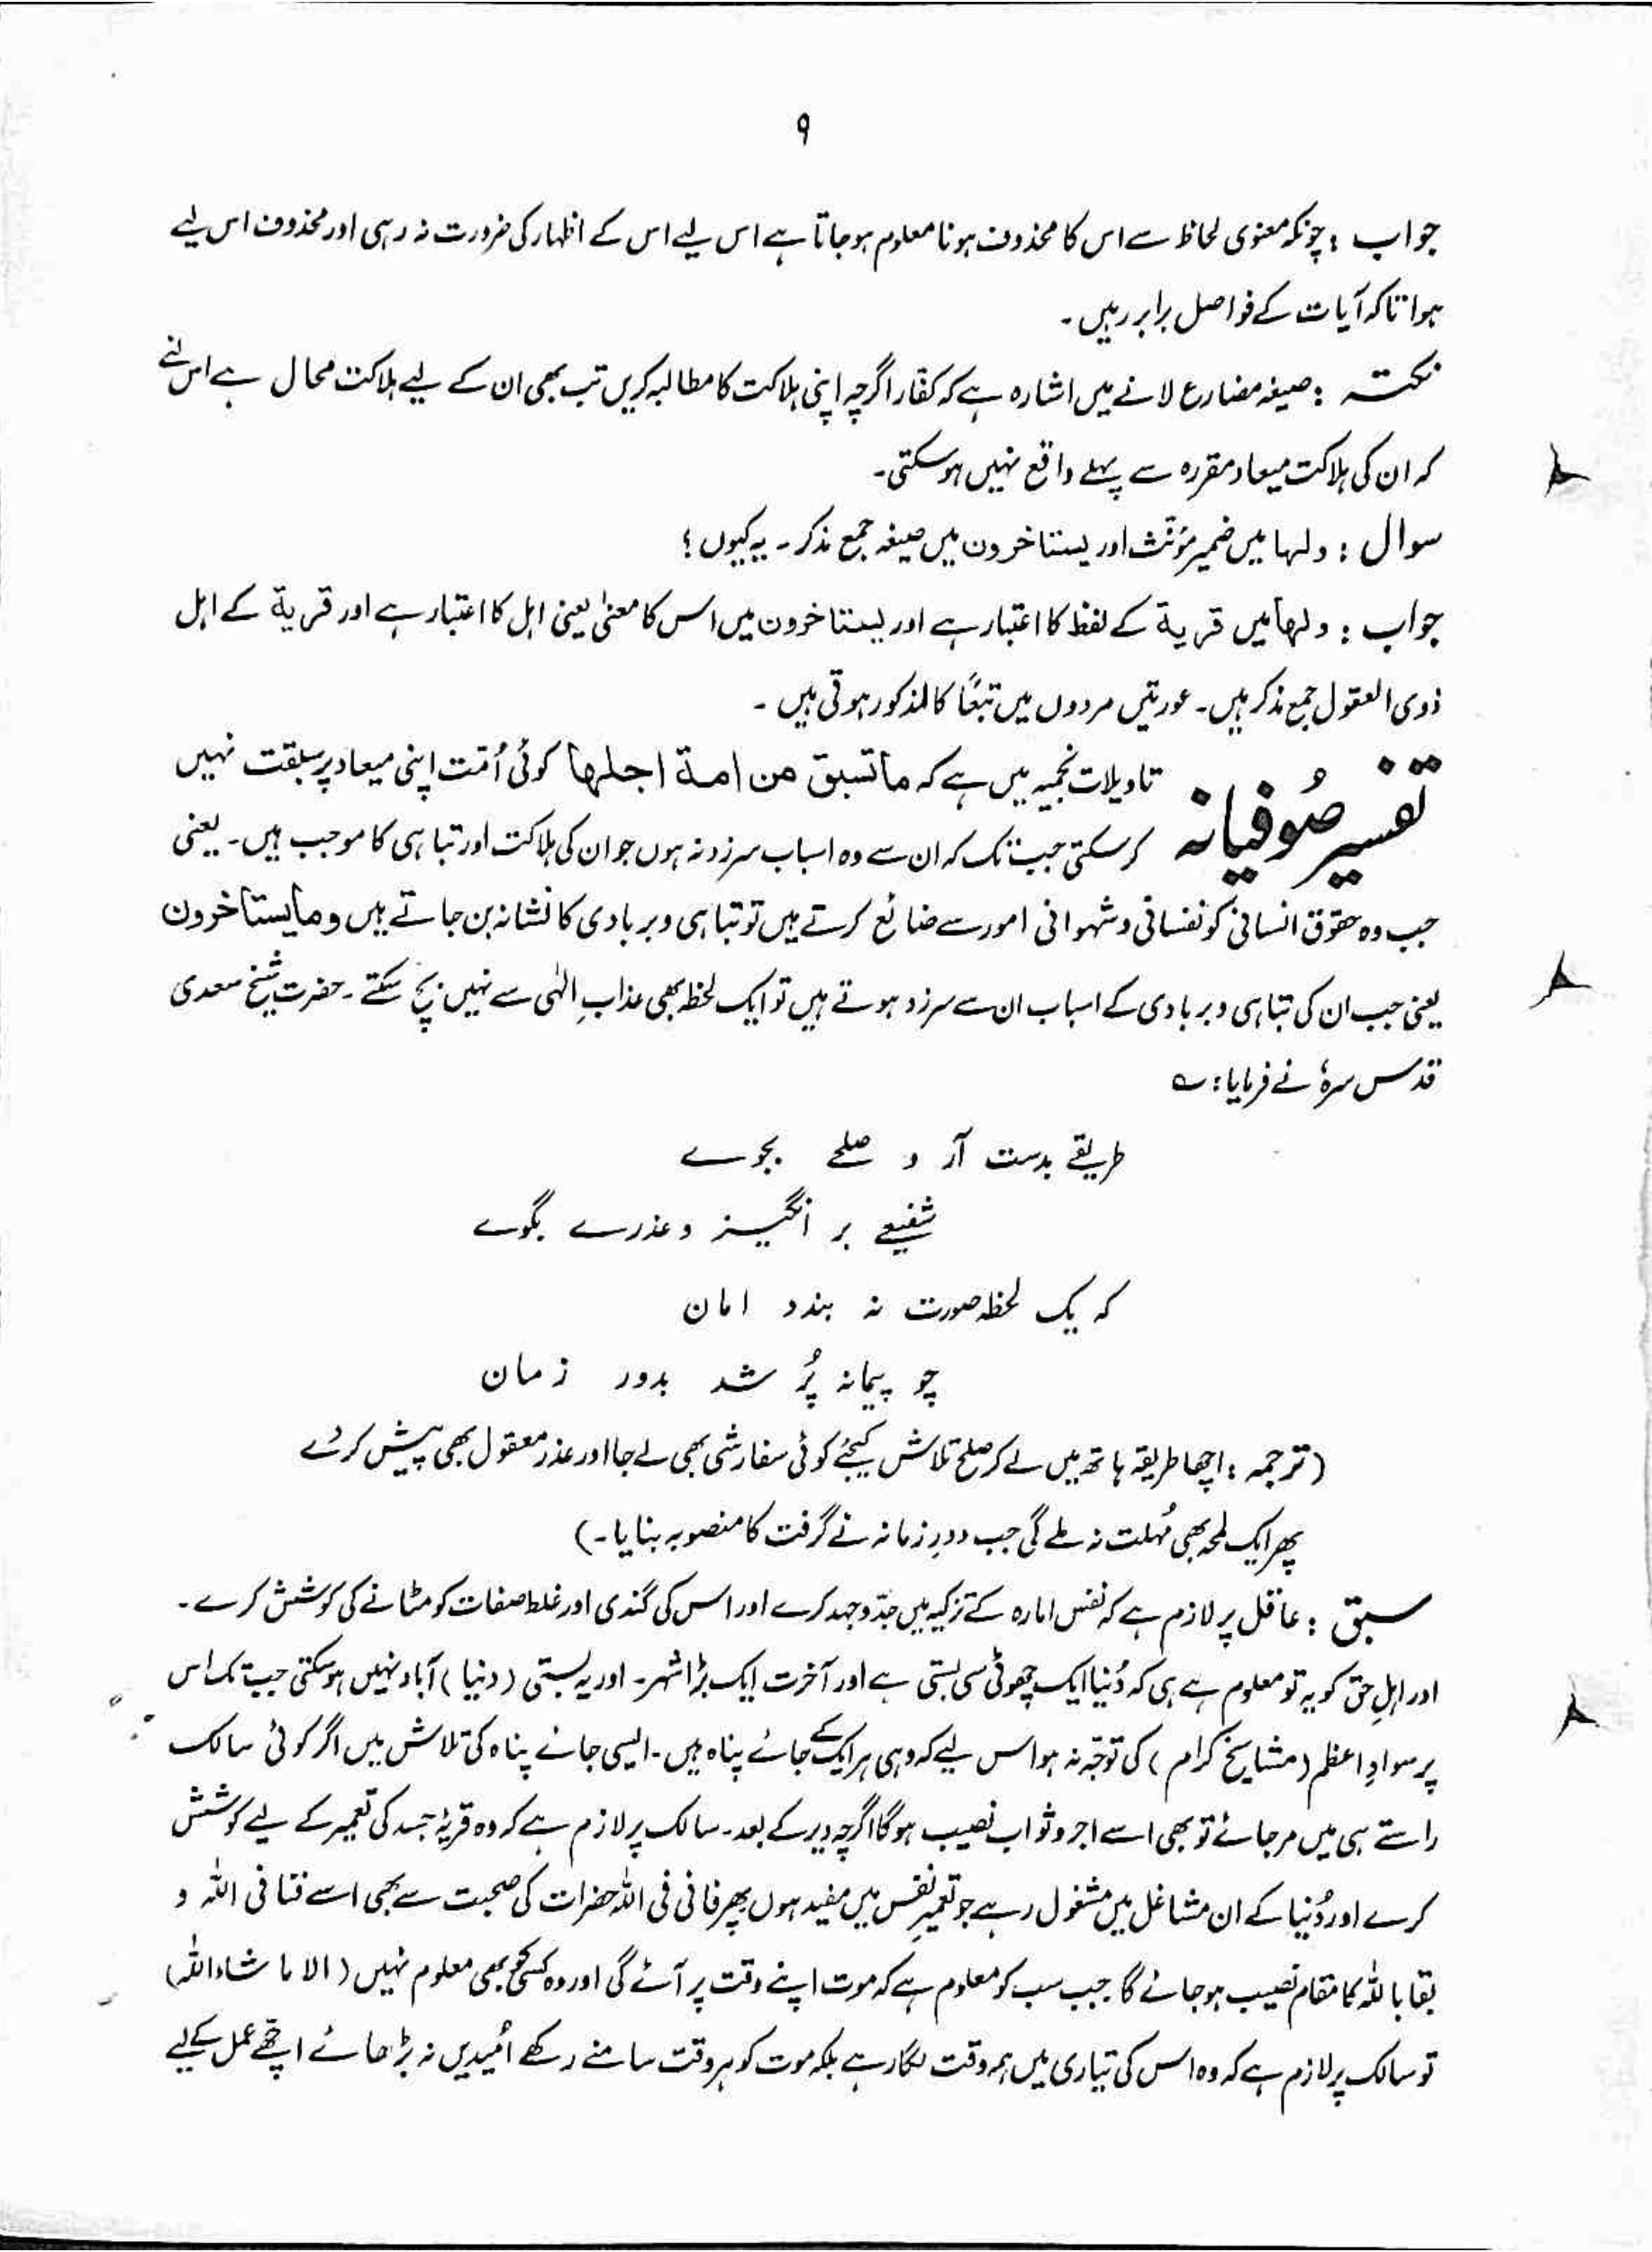 ۹
جواب : چونکہ معنوی لحاظ سے اس کا محذوف ہونا معلوم ہو جاتا ہے اس لیے اس کے اظہار کی ضرورت نہ رہی اور محذوف اس لیے
ہوا تاکہ آیات کے فواصل برابر رہیں ۔
نکتہ : صیغہ مضارع لانے میں اشارہ ہے کہ کفار اگرچہ اپنی ہلاکت کا مطالبہ کریں تب بھی ان کے لیے ہلاکت محال ہے اس لئے
کہ ان کی ہلاکت میعاد مقررہ سے پہلے واقع نہیں ہو سکتی ۔
سوال : ولہا میں ضمیر مؤنث اور یستاخرون میں صیغہ جمع مذکر ۔ یہ کیوں ؟
جواب : ولہا میں قریة کے لفظ کا اعتبار ہے اور یستاخرون میں اس کا معنیٰ یعنی اہل کا اعتبار ہے اور قریة کے اہل
ذوی العقول جمع مذکر ہیں ۔ عورتیں مردوں میں تبعًا کالمذکور ہوتی ہیں ۔
تفسیر صُوفیانہ تاویلات نجمیہ میں ہے کہ ما تسبق من امة اجلها کوئی اُمّت اپنی میعاد پر سبقت نہیں
کر سکتی جب تک کہ ان سے وہ اسباب سرزد نہ ہوں جو ان کی ہلاکت اور تباہی کا موجب ہیں ۔ یعنی
جب وہ حقوق انسانی کو نفسانی و شہوانی امور سے ضائع کرتے ہیں تو تباہی و بربادی کا نشانہ بن جاتے ہیں وما یستاخرون
یعنی جب ان کی تباہی و بربادی کے اسباب ان سے سرزد ہوتے ہیں تو ایک لحظہ بھی عذابِ الٰہی سے نہیں بچ سکتے ۔ حضرت شیخ سعدی
قدس سرہٗ نے فرمایا : ؎
طریقے بدست آر و صلحے بجوے
شفیعے بر انگیز و عذرے بگوے
کہ یک لحظہ صورت نہ بندد امان
چو پیمانہ پُر شد بدور زمان
( ترجمہ : اچھا طریقہ ہاتھ میں لے کر صلح تلاش کیجئے کوئی سفارشی بھی لے جا اور عذر معقول بھی پیش کر دے
پھر ایک لمحہ بھی مُہلت نہ ملے گی جب دورِ زمانہ نے گرفت کا منصوبہ بنایا ۔ )
سبق : عاقل پر لازم ہے کہ نفس امارہ کے تزکیہ میں جدّوجہد کرے اور اس کی گندی اور غلط صفات کو مٹانے کی کوشش کرے ۔
اور اہلِ حق کو یہ تو معلوم ہے ہی کہ دُنیا ایک چھوٹی سی بستی ہے اور آخرت ایک بڑا شہر ۔ اور یہ بستی ( دنیا ) آباد نہیں ہو سکتی جب تک اس
پر سوادِ اعظم ( مشایخ کرام ) کی توجّہ نہ ہو اس لیے کہ وہی ہر ایک کے جائے پناہ ہیں ۔ ایسی جائے پناہ کی تلاش میں اگر کوئی سالک
راستے ہی میں مر جائے تو بھی اسے اجر و ثواب نصیب ہو گا اگرچہ دیر کے بعد ۔ سالک پر لازم ہے کہ وہ قریۂ جسد کی تعمیر کے لیے کوشش
کرے اور دُنیا کے ان مشاغل میں مشغول رہے جو تعمیرِ نفس میں مفید ہوں پھر فانی فی اللہ حضرات کی صحبت سے بھی اسے فنا فی اللہ و
بقا باللہ کا مقام نصیب ہو جائے گا ۔ جب سب کو معلوم ہے کہ موت اپنے وقت پر آئے گی اور وہ کسی کو بھی معلوم نہیں ( الا ما شاء اللہ )
تو سالک پر لازم ہے کہ وہ اس کی تیاری میں ہمہ وقت لگا رہے بلکہ موت کو ہر وقت سامنے رکھے اُمیدیں نہ بڑھائے اچھے عمل کے لیے